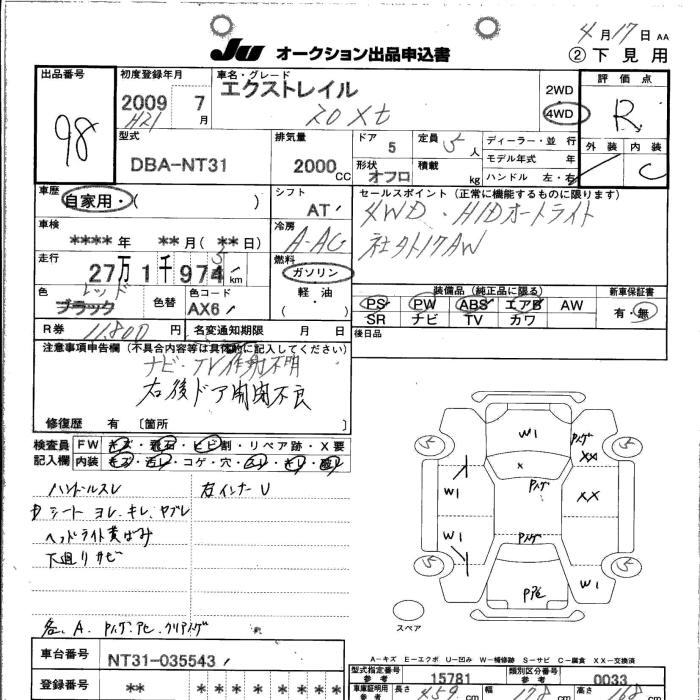 4月17日 AA
JU オークション出品申込書 ②下見用
出品番号 98
初度登録年月 2009 7月 H21
車名・グレード エクストレイル 20Xt
2WD 4WD
評価点 R
外装 内装 C
型式 DBA-NT31
排気量 2000 CC
ドア 5
定員 5人
形状 オフロ
積載 kg
ディーラー・並行
モデル年式 年
ハンドル 左・右
車歴 自家用・( )
シフト AT
セールスポイント(正常に機能するものに限ります)
4WD・HIDオートライト
社外17AW
車検 **** 年 **月(**日)
冷房 A-AC
走行 27万1千974km 5
燃料 ガソリン 軽・油 ( )
色 ブラック レッド
色替
色コード AX6
装備品(純正品に限る)
PS PW ABS エアB AW
SR ナビ TV カワ
新車保証書 有・無
R券 11,800円
名変通知期限 月 日
後日品
注意事項申告欄(不具合内容等は具体的に記入してください)
ナビ・TV作動不明
右後ドア開閉不良
修復歴 有 〔箇所 〕
検査員記入欄
FW キズ・飛石・ヒビ割・リペア跡・X要
内装 キズ・汚レ・コゲ・穴・
ハンドルスレ 右インナーU
シート ヨレ、キレ、ヤブレ
ヘッドライト黄ばみ
下廻りサビ
各、A
W1
XX
W1
XX
W1
W1
スペア
A-キズ E-エクボ U-凹み W-補修跡 S-サビ C-腐食 XX-交換済
車台番号 NT31-035543
型式指定番号 参考 15781
類別区分番号 参考 0033
登録番号 ** * * * * * * *
車庫証明用参考 長さ 459 cm 幅 178 cm 高さ 168 cm